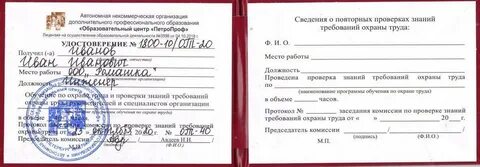 Автономная некоммерческая организация
дополнительного профессионального образования
«Образовательный центр «ПетроПроф»
Лицензия на осуществление образовательной деятельности
УДОСТОВЕРЕНИЕ № 1300-10/ОТ-20
Получил (-а) Иванов
Иван Иванович
Место работы ООО „Ромашка"
Должность Инженер
Обучение по охране труда и проверки знаний требований
охраны труда руководителей и специалистов организации
Протокол № заседания комиссии по проверке знаний требований
20 г. № ОТ-40
Председатель комиссии Авдеев И.И.
М.П. (Ф.И.О.)
Сведения о повторных проверках знаний
требований охраны труда
Ф. И. О.
Место работы
Должность
Проведена проверка знаний требований охраны труда
по
(наименование программы обучения по охране труда)
в объеме часов.
Протокол № заседания комиссии по проверке знаний
требований охраны труда от « » 20 г.
Председатель комиссии
М.П. (подпись) (Ф.И.О.)